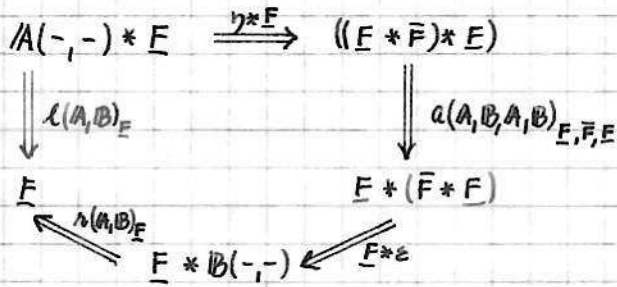 𝔸(-,-) * F̲ η*F̲ ((F̲ * F̄) * F̲)
l(𝔸,𝔹)_F̲ a(𝔸,𝔹,𝔸,𝔹)_F̲,F̄,F̲
F̲ F̲ * (F̄ * F̲)
r(𝔸,𝔹)_F̲ F̲*ε
F̲ * 𝔹(-,-)